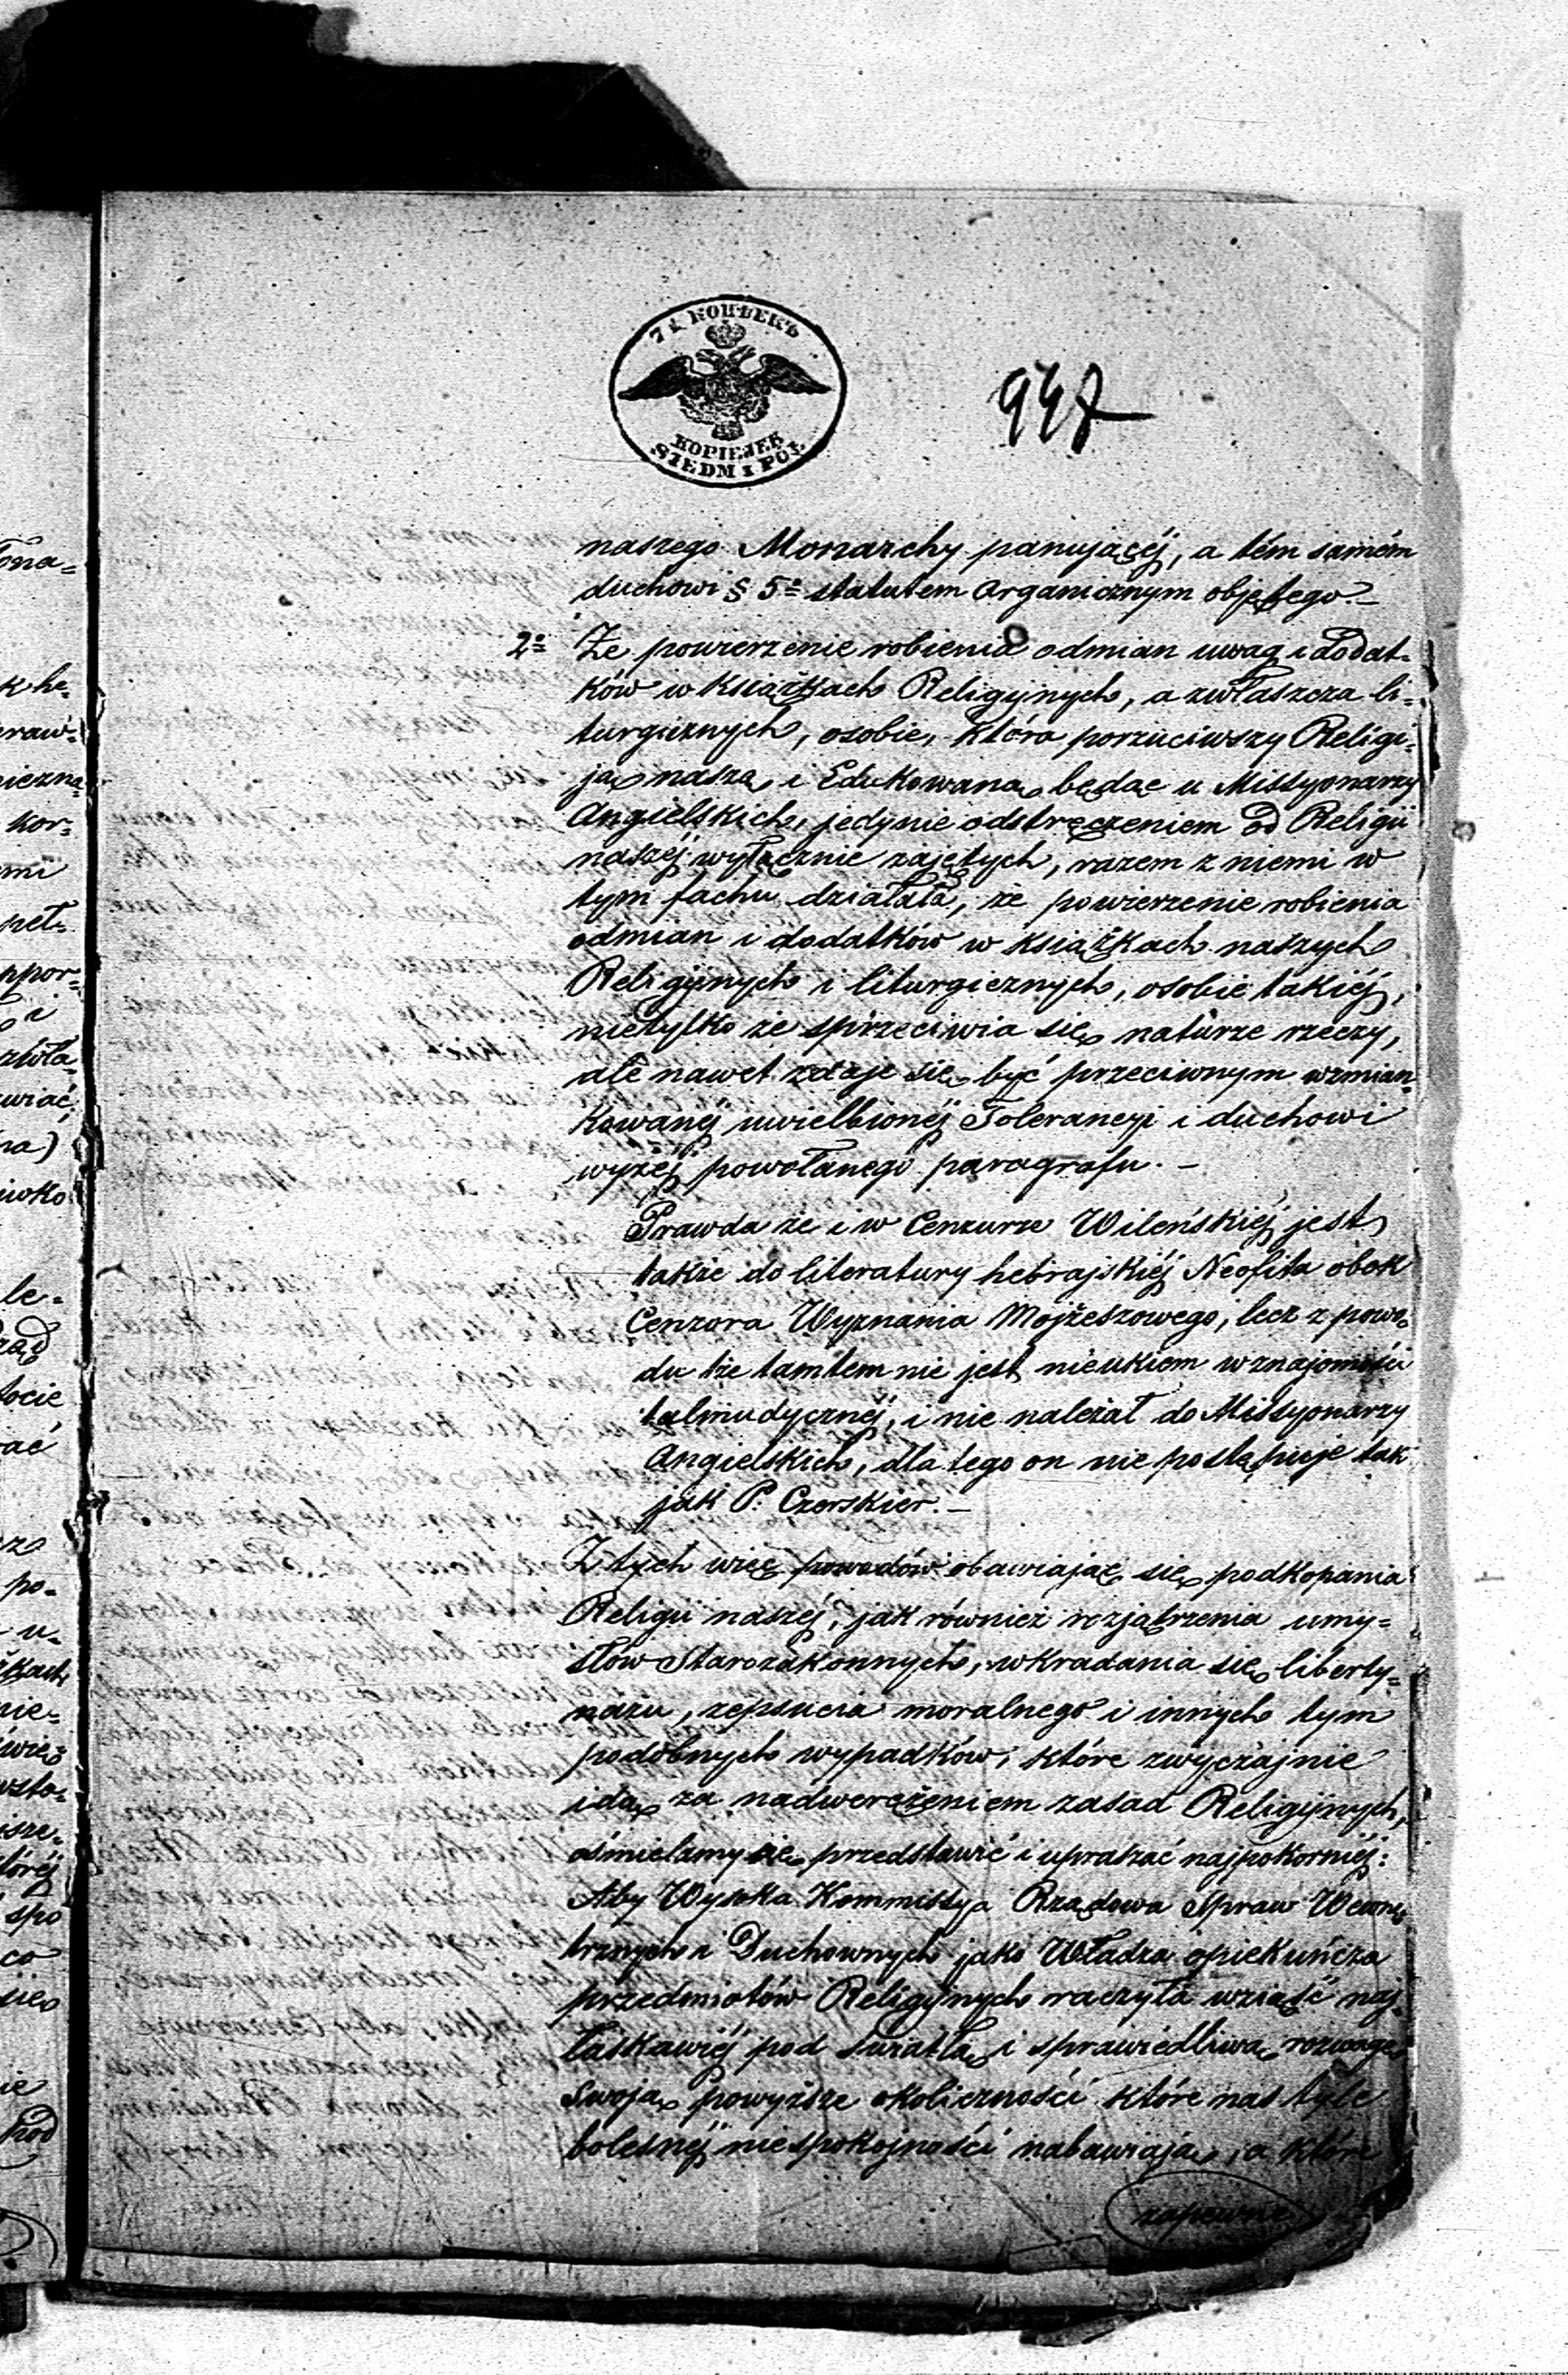 7½ КОПѢЕКЪ
KOPIEJEK
SIEDM i PÓŁ
947
naszego Monarchy panującéj, a tém samém
duchowi § 5º statutem Organicznym objętego.—
2º Że powierzenie robienia odmian uwag i dodat-
ków w książkach Religijnych, a zwłaszcza li-
turgicznych, osobie, która porzuciwszy Religi-
ją naszą i Edukowaną będąc u Missyonarzy
Angielskich, jedynie odstręczeniem od Religii
naszéj wyłącznie zajętych, razem z niemi w
tym fachu działała, że powierzenie robienia
odmian i dodatków w książkach naszych
Religijnych i liturgicznych, osobie takiéj,
nietylko że sprzeciwia się naturze rzeczy,
ale nawet zdaje się być przeciwnym wzmian-
kowanéj uwielbionéj Tolerancyi i duchowi
wyżéj powołanego paragrafu.—
Prawda że i w Cenzurze Wileńskiéj jest
także do literatury hebrajskiéj Neofita obok
Cenzora Wyznania Mojżeszowego, lecz z powo-
du że tamtem nie jest nieukiem w znajomości
talmudycznéj, i nie należał do Missyonarzy
Angielskich, dla tego on nie postąpuje tak
jak P. Czerskier.—
Z tych więc powodów obawiając się podkopania
Religii naszéj, jak również rozjątrzenia umy-
słów Starozakonnych, wkradania się liberty-
nazu, zepsucia moralnego i innych tym
podobnych wypadków, które zwyczajnie
idą za nadwerężeniem zasad Religijnych,
ośmielamy się przedstawić i upraszać najpokorniéj:
Aby Wysoka Kommissya Rządowa Spraw Wewnę-
trznych i Duchownych jako Władza opiekuńcza
przedmiotów Religijnych raczyła wziąść naj-
łaskawiéj pod światłą i sprawiedliwą rozwagę
swoją powyższe okoliczności które nas tyle
bolesnéj niespokojności nabawiają, a które
zapewne